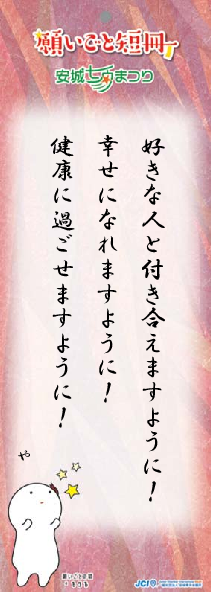 願いごと短冊
安城七夕まつり
好きな人と付き合えますように！
幸せになれますように！
健康に過ごせますように！
や
願いごとの国
きーぼー
JCI